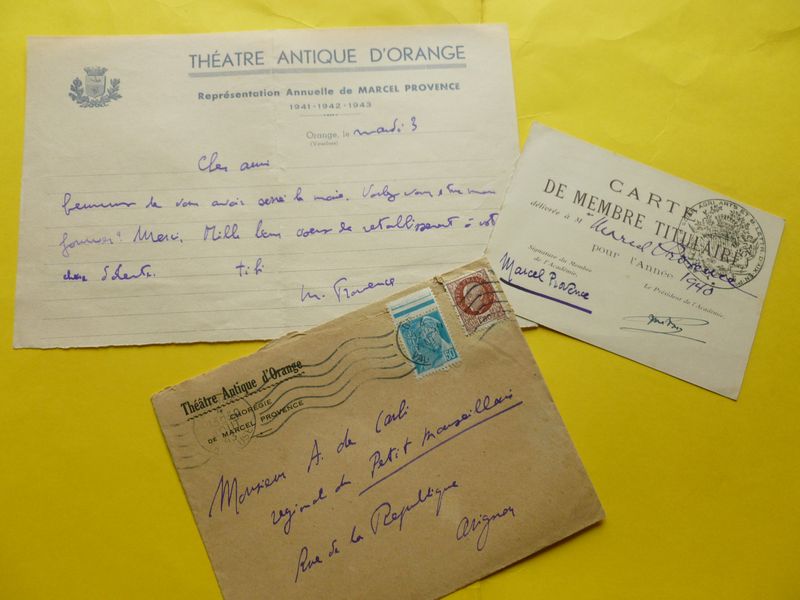 THÉATRE ANTIQUE D'ORANGE
Représentation Annuelle de MARCEL PROVENCE
1941-1942-1943
Orange, le mardi 3
(Vaucluse)
Cher ami
de vous avoir serré la main. Voulez vous être mon
? Merci. Mille bons voeux de rétablissement à votre
chère
M. Provence
CARTE
DE MEMBRE TITULAIRE
délivrée à M Marcel Provence
pour l'année 1940
Signature du Membre
de l'Académie,
Marcel Provence
Le Président de l'Académie,
Théâtre Antique d'Orange
CHORÉGIE
DE MARCEL PROVENCE
50
Monsieur A. de Carli
régional du Petit Marseillais
Rue de la République
Avignon